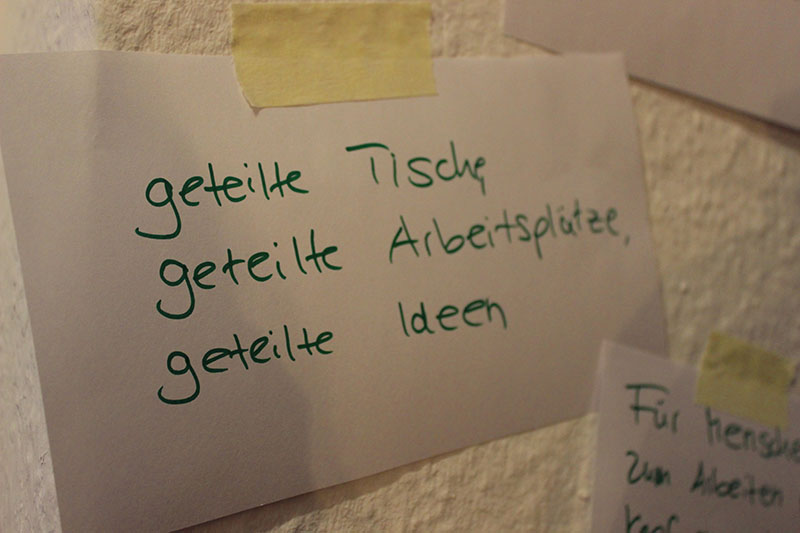 geteilte Tische,
geteilte Arbeitsplätze,
geteilte Ideen
Für
Zum Arbeiten